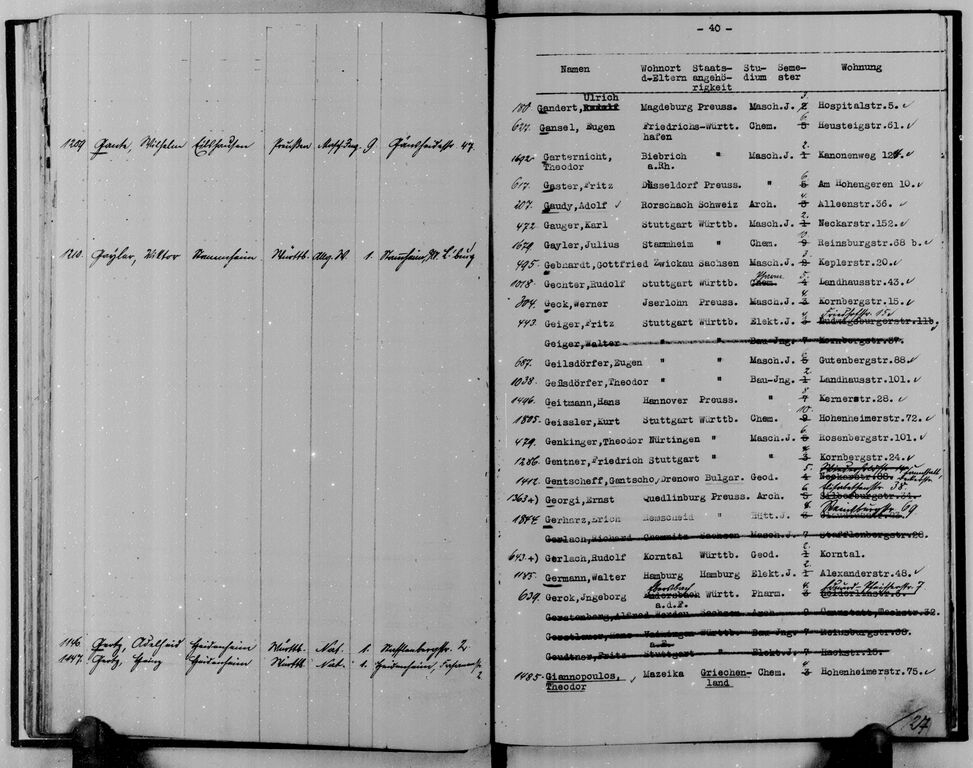 1209 Gantz, Wilhelm Eilshausen Preußen Masch.Ing. 9 Gänsheidestr. 47.
1210. Gayler, Viktor Stammheim Württb. Allg.W. 1. Stammheim, L.burg
1146 Gertz, Adelheid Heidenheim Württb. Nat. 1. 2
1147. Gertz, Heinz Heidenheim Württb. Nat. 1. Heidenheim, 2
- 40 -
Namen Wohnort d.Eltern Staats-angehö-rigkeit Stu-dium Seme-ster Wohnung
180 Gandert, Rudolf Ulrich Magdeburg Preuss. Masch.J. 2 3. Hospitalstr.5.
627. Gansel, Eugen Friedrichs- Württ. Chem. 5 6. Heusteigstr.61.
hafen
1692. Garternicht, Biebrich " Masch.J. 1 2. Kanonenweg 124.
Theodor a.Rh.
617. Gaster, Fritz Düsseldorf Preuss. " 5 6. Am Hohengeren 10.
207. Gaudy, Adolf Rorschach Schweiz Arch. 3 4. Alleenstr.36.
472 Gauger, Karl Stuttgart Württb. Masch.J. 1 2. Neckarstr.152.
1679. Gayler, Julius Stammheim " Chem. 9 10. Reinsburgstr.68 b.
495. Gebhardt, Gottfried Zwickau Sachsen Masch.J. 3. Keplerstr.20.
1018. Gechter, Rudolf Stuttgart Württb. Chem. Pharm. 4 5. Landhausstr.43.
304. Geck, Werner Jserlohn Preuss. Masch.J. 3 4. Kornbergstr.15.
443. Geiger, Fritz Stuttgart Württb. Elekt.J. 3 4. Ludwigsburgerstr.11b, Friedhofstr. 15
Geiger, Walter " " Bau-Jng. 7 Kornbergstr.37.
687. Geilsdörfer, Eugen " " Masch.J. 5 6. Gutenbergstr.88.
1038. Geilsdörfer, Theodor " " Bau-Jng. 1 2. Landhausstr.101.
1496. Geitmann, Hans Hannover Preuss. " 7 8. Kernerstr.28.
1805. Geissler, Kurt Stuttgart Württb. Chem. 9 10. Hohenheimerstr.72.
479. Genkinger, Theodor Nürtingen " Masch.J. 5 6. Rosenbergstr.101.
1286. Gentner, Friedrich Stuttgart " " 3 4. Kornbergstr.24.
1412. Gentscheff, Gantscho, Drenowo Bulgar. Geod. 4 5. Neckarstr.88.
1363+) Georgi, Ernst Quedlinburg Preuss. Arch. 5 6. Silberburgstr.34. 38.
1844. Gerharz, Erich Remscheid " Hütt.J. 8. 69
Gerlach, Richard Chemnitz Sachsen Masch.J. 7 Stafflenbergstr.28.
643+) Gerlach, Rudolf Korntal Württb. Geod. 1 2. Korntal.
1185. Germann, Walter Hamburg Hamburg Elekt.J. 1 2. Alexanderstr.48.
639. Gerok, Jngeborg Ebersbach Württ. Pharm. 3 4. 7
a.d.F.
Gerstenberg, Alfred Werdau Sachsen Arch. 9 32.
Gerstlauer, Hans Württb. Bau-Jng. 7 Reinsburgstr.38.
Geudtner, Fritz Stuttgart " Elekt.J. 7 Hackstr.15.
1485. Giannopoulos, Mazeika Griechen- Chem. 3 4. Hohenheimerstr.75.
Theodor land
127